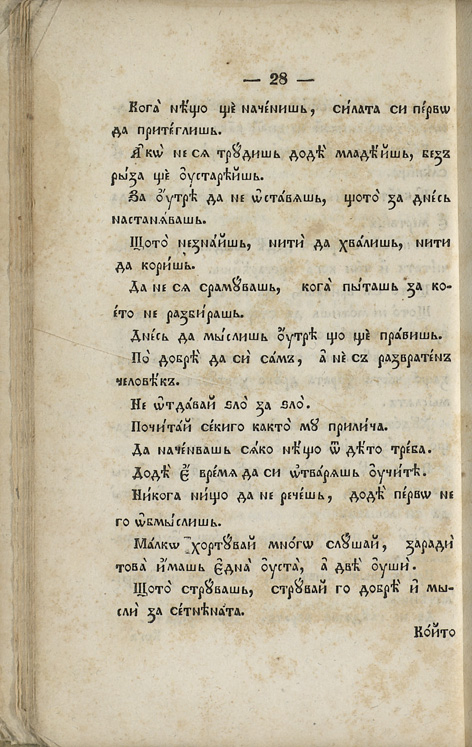 — 28 —
Кога̀ нѣ́що щѐ наче́нишь, си́лата си пе́рвѡ
да прите́глишь.
А҆́кѡ не сѧ трꙋ́дишь додѣ̀ младѣ́йшь, безъ
ры́за щѐ ѹ҆старѣ́йшь.
За ѹ҆́трѣ да не ѡ҆ста́вѧшь, що́то за дне́сь
настанѧ́вашь.
Що́то незна́йшь, нити́ да хва́лишь, нити
да кори́шь.
Да не сѧ срамꙋ́вашь, кога̀ пы́ташь за ко-
е́то не разби́рашь.
Дне́сь да мы́слишь ѹ҆́трѣ що щѐ пра́вишь.
По̀ добрѣ̀ да сѝ са́мъ, а҆ нѐ съ разврате́нъ
человѣ́къ.
Не ѿда́вай ѕло̀ за ѕло̀.
Почита́й се́киго както̀ мꙋ̀ прили́ча.
Да наче́нвашь сѧ́ко нѣ́що ѿ дѣ́то тре́ба.
Додѣ̀ є҆̀ вре́мѧ да си ѿва́рѧшь ѹ҆чи́тѣ.
Ни́кога ни́що да не рече́шь, додѣ̀ пе́рвѡ не
го ѡ҆бмы́слишь.
Ма́лкѡ хортꙋ́вай мно́гѡ слꙋ́шай, заради́
това̀ и҆́машь є҆дна̀ ѹ҆ста̀, а҆ двѣ̀ ѹ҆шѝ.
Що́то стрꙋ́вашь, стрꙋ́вай го добрѣ̀ и҆̀ мы-
слѝ за сетнѣ́ната.
Ко́йто